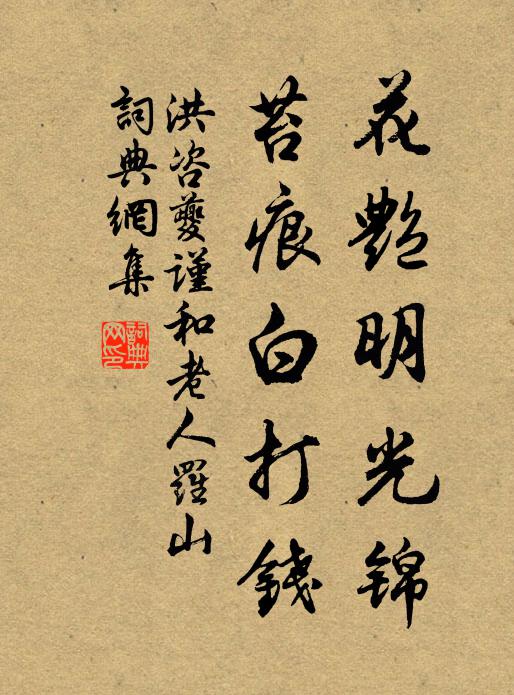 花艷明光锦
苔痕白打錢
洪咨夔謹和老人羅山
詞典網集
詞典網印